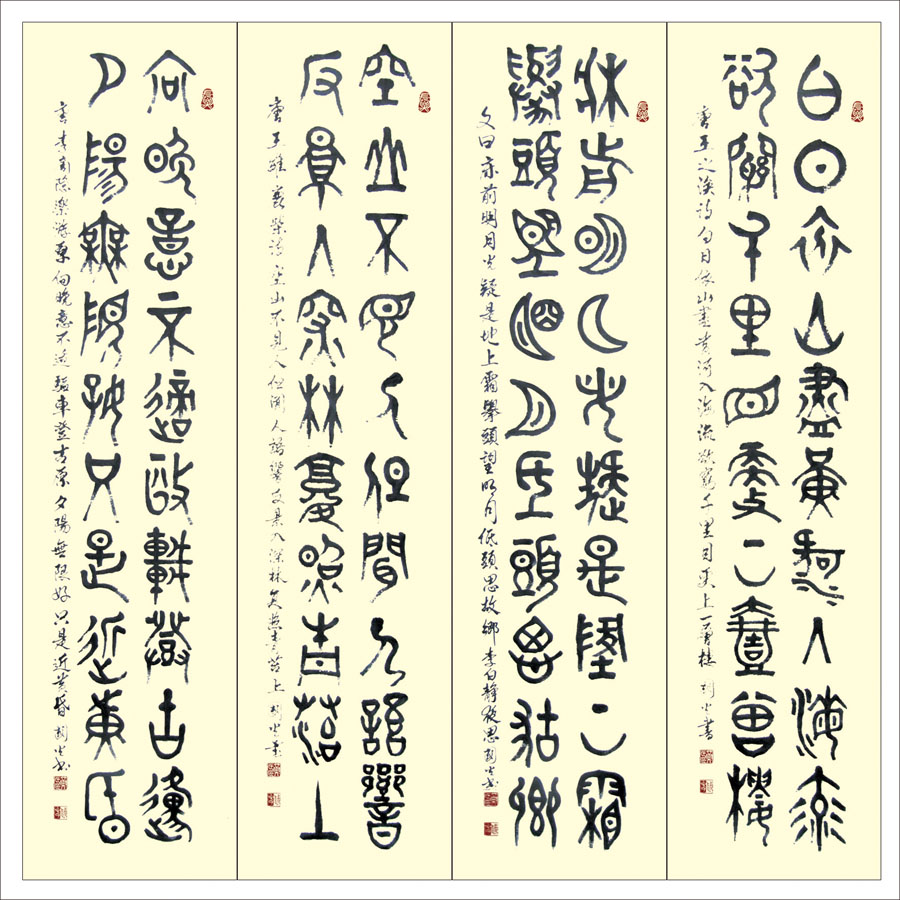 白日依山盡黃河入海流
欲窮千里目更上一層樓
唐王之渙詩句日依山盡黃河入海流欲窮千里目更上一層樓 胡書
床前明月光疑是地上霜
舉頭望明月低頭思故鄉
文曰床前明月光疑是地上霜舉頭望明月低頭思故鄉李白靜夜思
空山不見人但聞人語響
反景入深林復照青苔上
唐王維鹿柴詩空山不見人但聞人語響反景入深林復照青苔上
向晚意不適驅車登古原
夕陽無限好只是近黃昏
李商隱樂游原向晚意不適驅車登古原夕陽無限好只是近黃昏